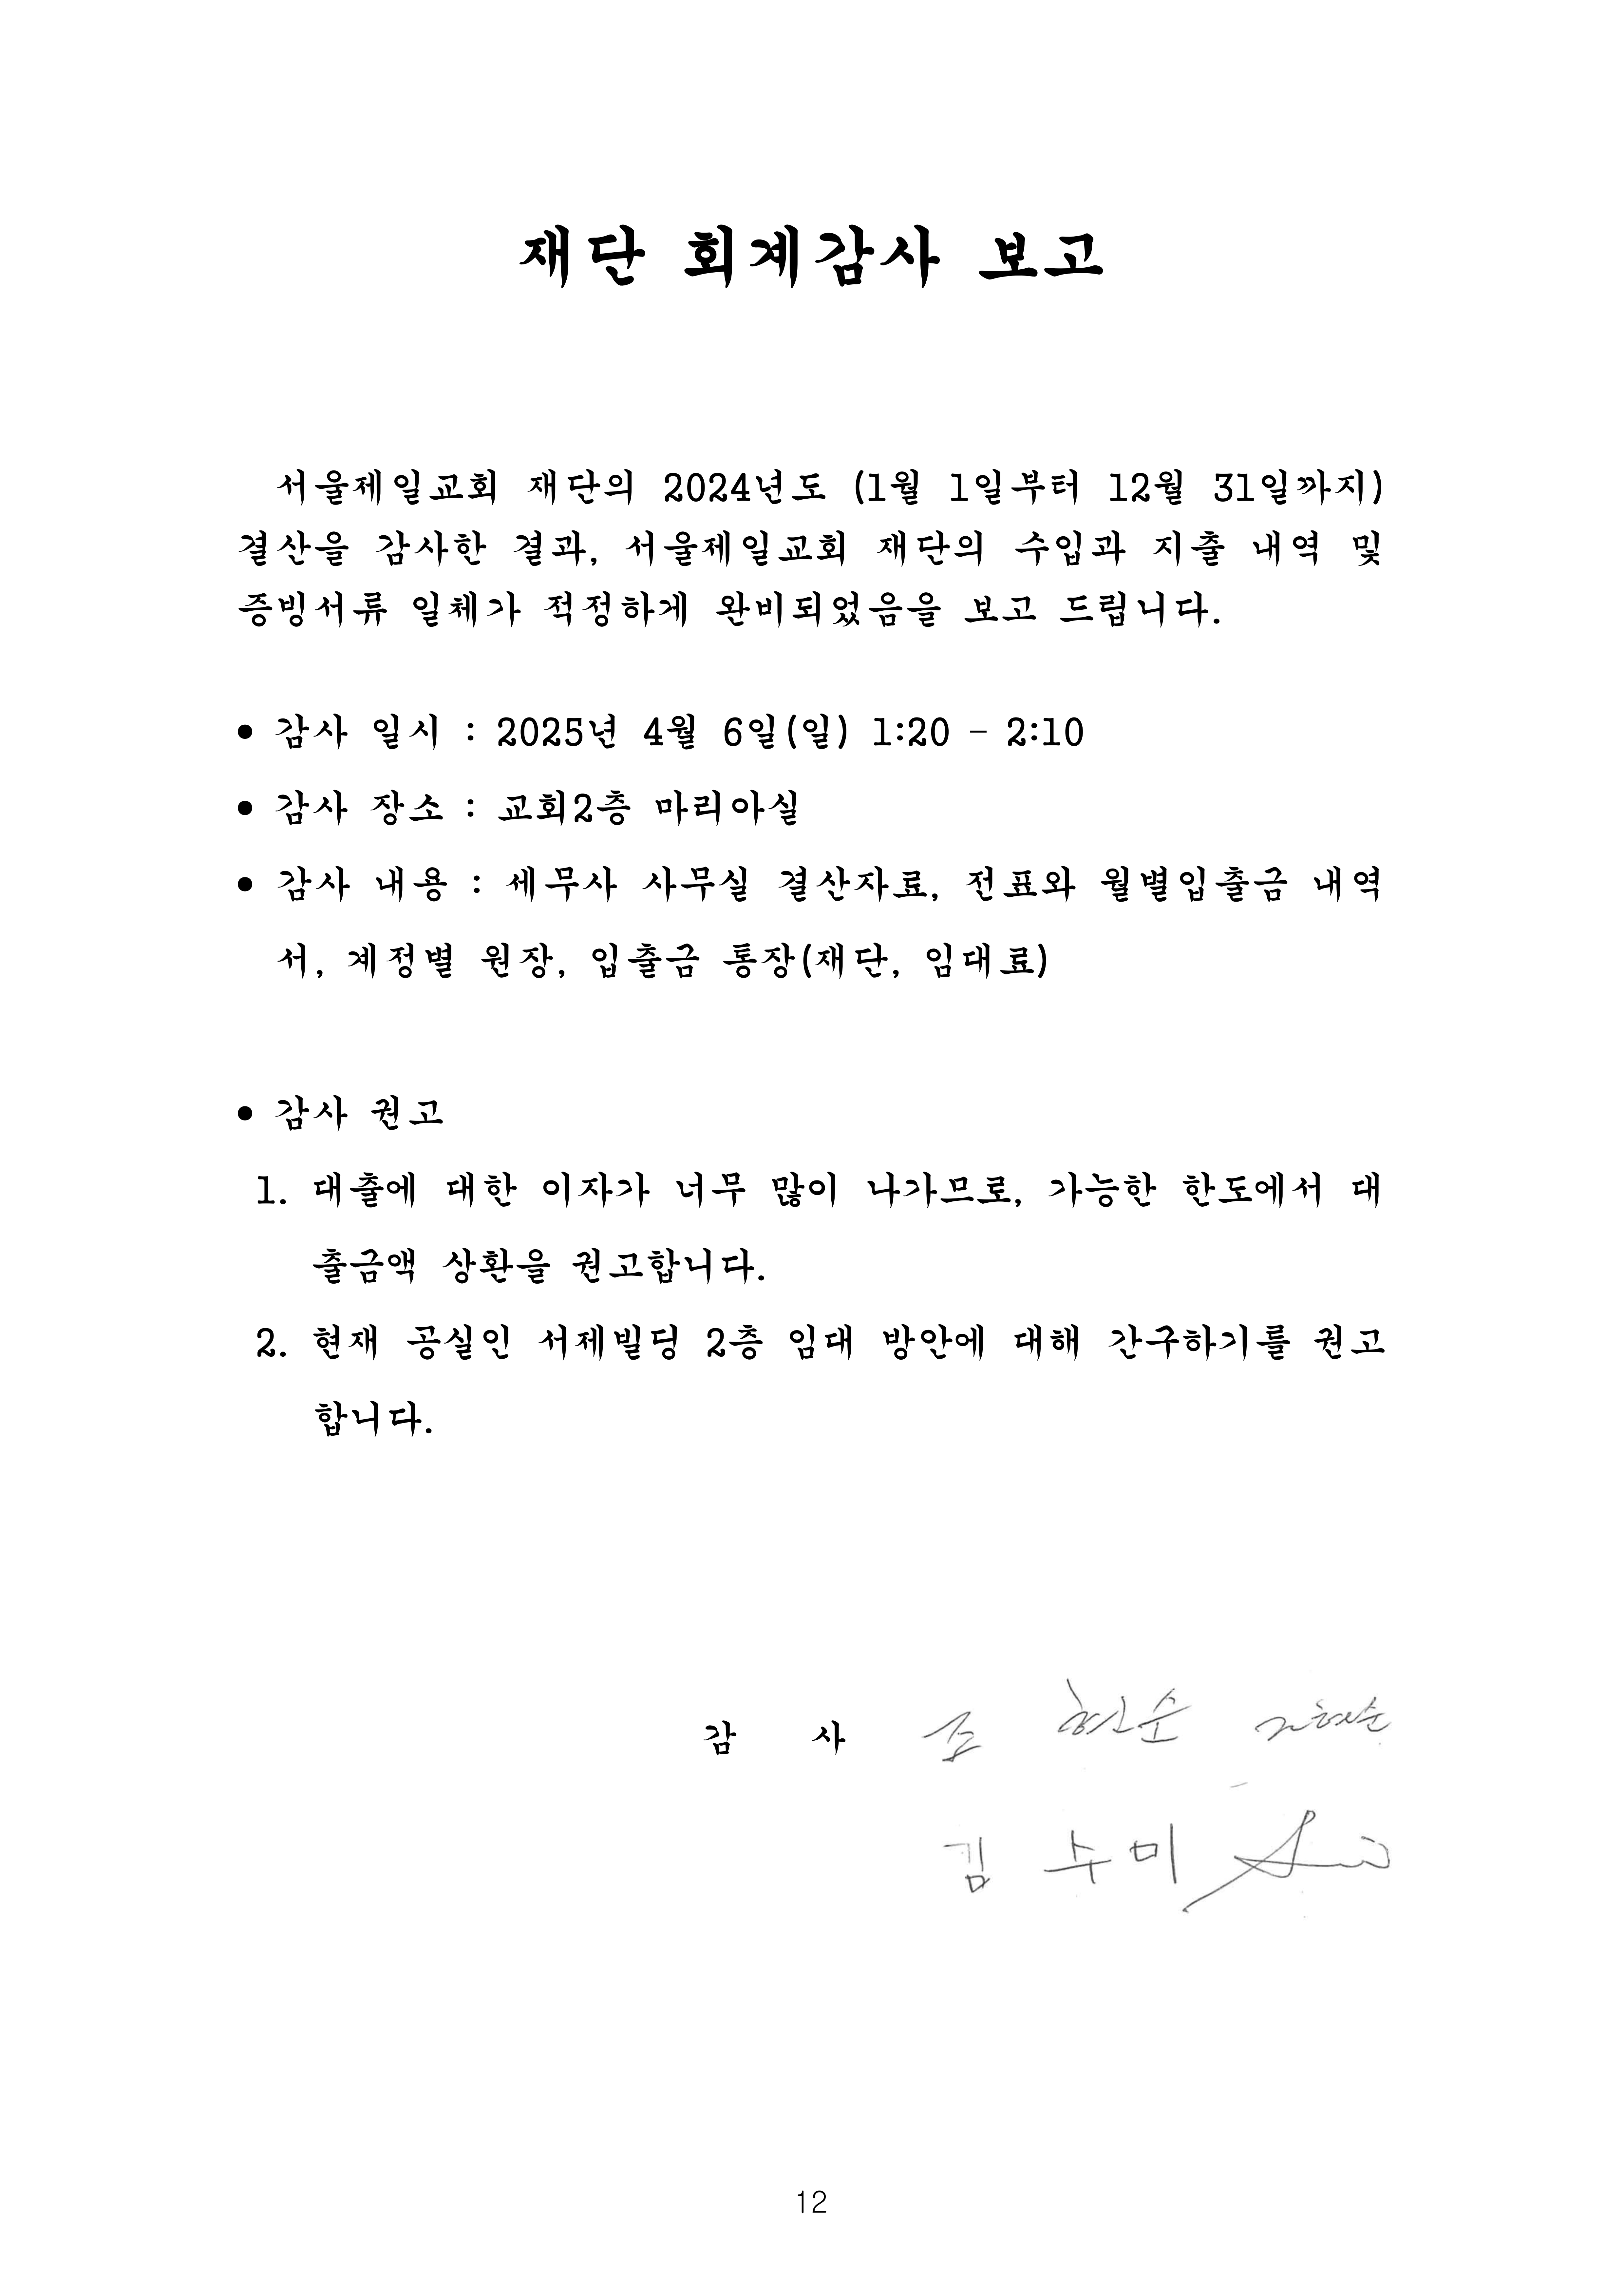 재단 회계감사 보고
서울제일교회 재단의 2024년도 (1월 1일부터 12월 31일까지)
결산을 감사한 결과, 서울제일교회 재단의 수입과 지출 내역 및
증빙서류 일체가 적정하게 완비되었음을 보고 드립니다.
● 감사 일시 : 2025년 4월 6일(일) 1:20 - 2:10
● 감사 장소 : 교회2층 마리아실
● 감사 내용 : 세무사 사무실 결산자료, 전표와 월별입출금 내역
서, 계정별 원장, 입출금 통장(재단, 임대료)
● 감사 권고
1. 대출에 대한 이자가 너무 많이 나가므로, 가능한 한도에서 대
출금액 상환을 권고합니다.
2. 현재 공실인 서제빌딩 2층 임대 방안에 대해 간구하기를 권고
합니다.
감 사 조
김 수미
12